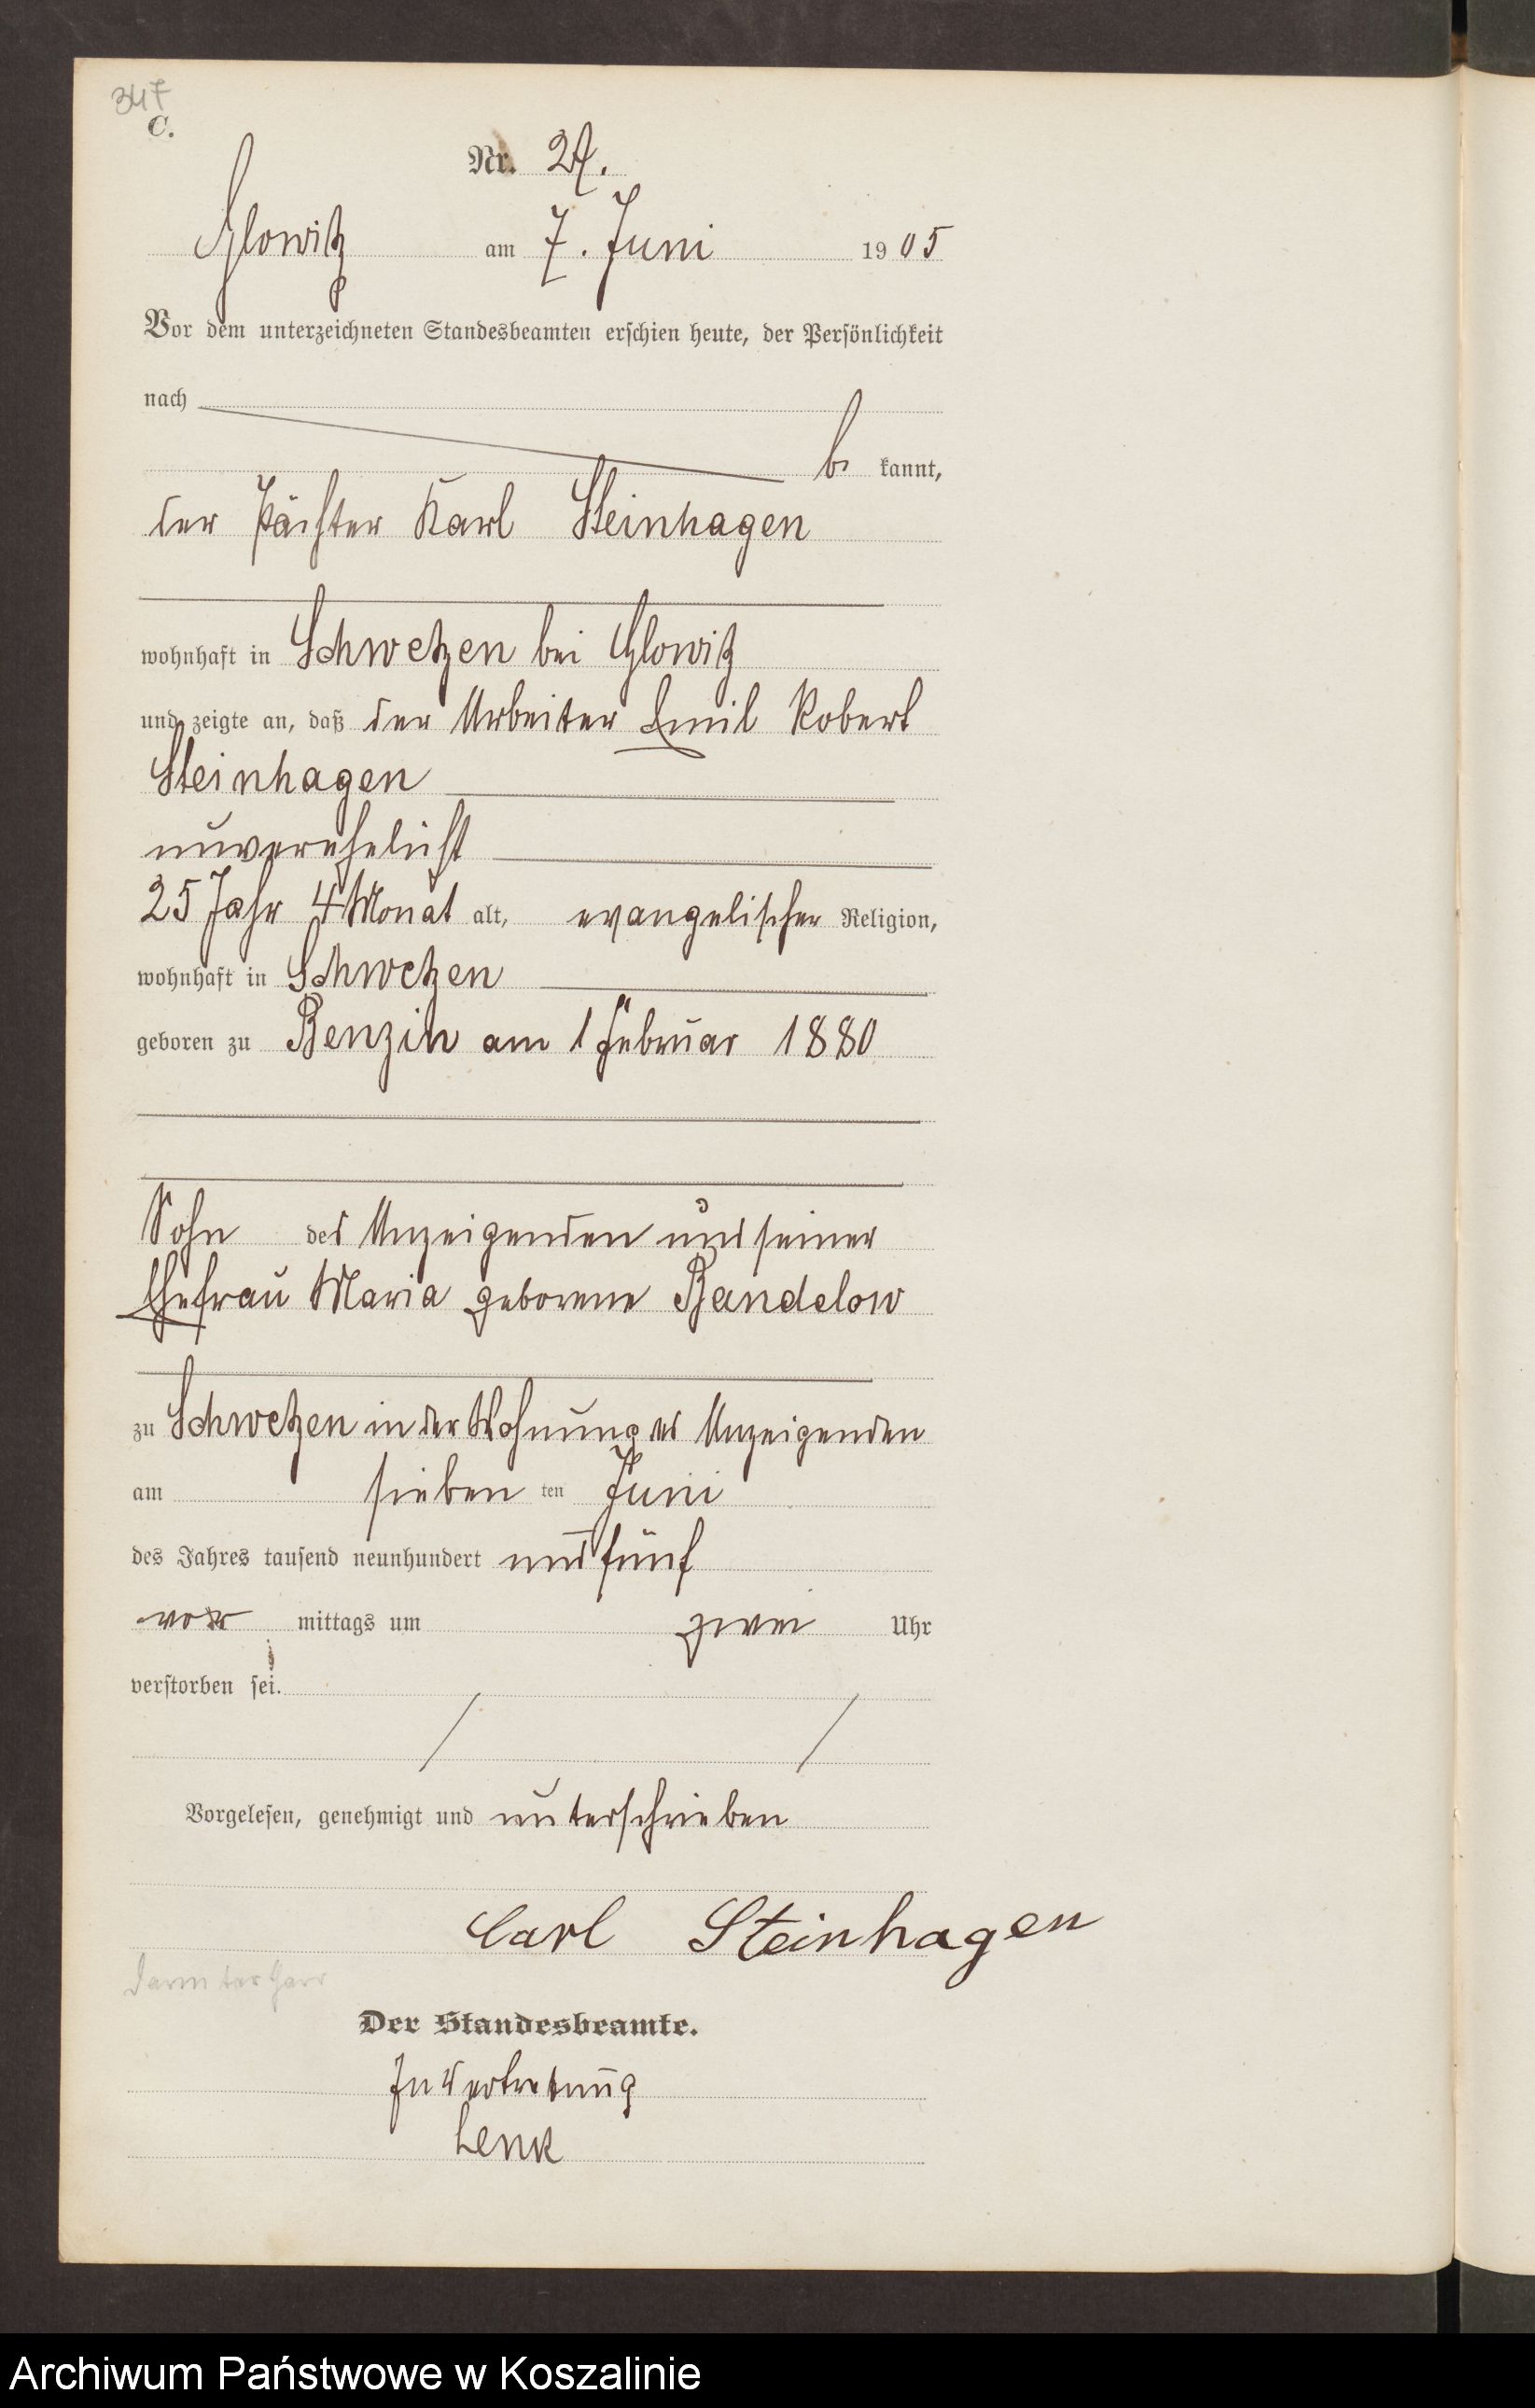 347
C.
Nr. 27.
Glowitz am 7. Juni 1905
Vor dem unterzeichneten Standesbeamten erschien heute, der Persönlichkeit
nach
be kannt,
der Pächter Karl Steinhagen
wohnhaft in Schwetzen bei Glowitz
und zeigte an, daß der Arbeiter Emil Robert
Steinhagen
unverehelicht
25 Jahr 4 Monat alt, evangelischer Religion,
wohnhaft in Schwetzen
geboren zu Benzin am 1 Februar 1880
Sohn des Anzeigenden und seiner
Ehefrau Maria geborene Bandelow
zu Schwetzen in der Wohnung des Anzeigenden
am sieben ten Juni
des Jahres tausend neunhundert und fünf
vor mittags um zwei Uhr
verstorben sei.
Vorgelesen, genehmigt und unterschrieben
Carl Steinhagen
Der Standesbeamte.
In Vertretung
Lenk
Archiwum Państwowe w Koszalinie